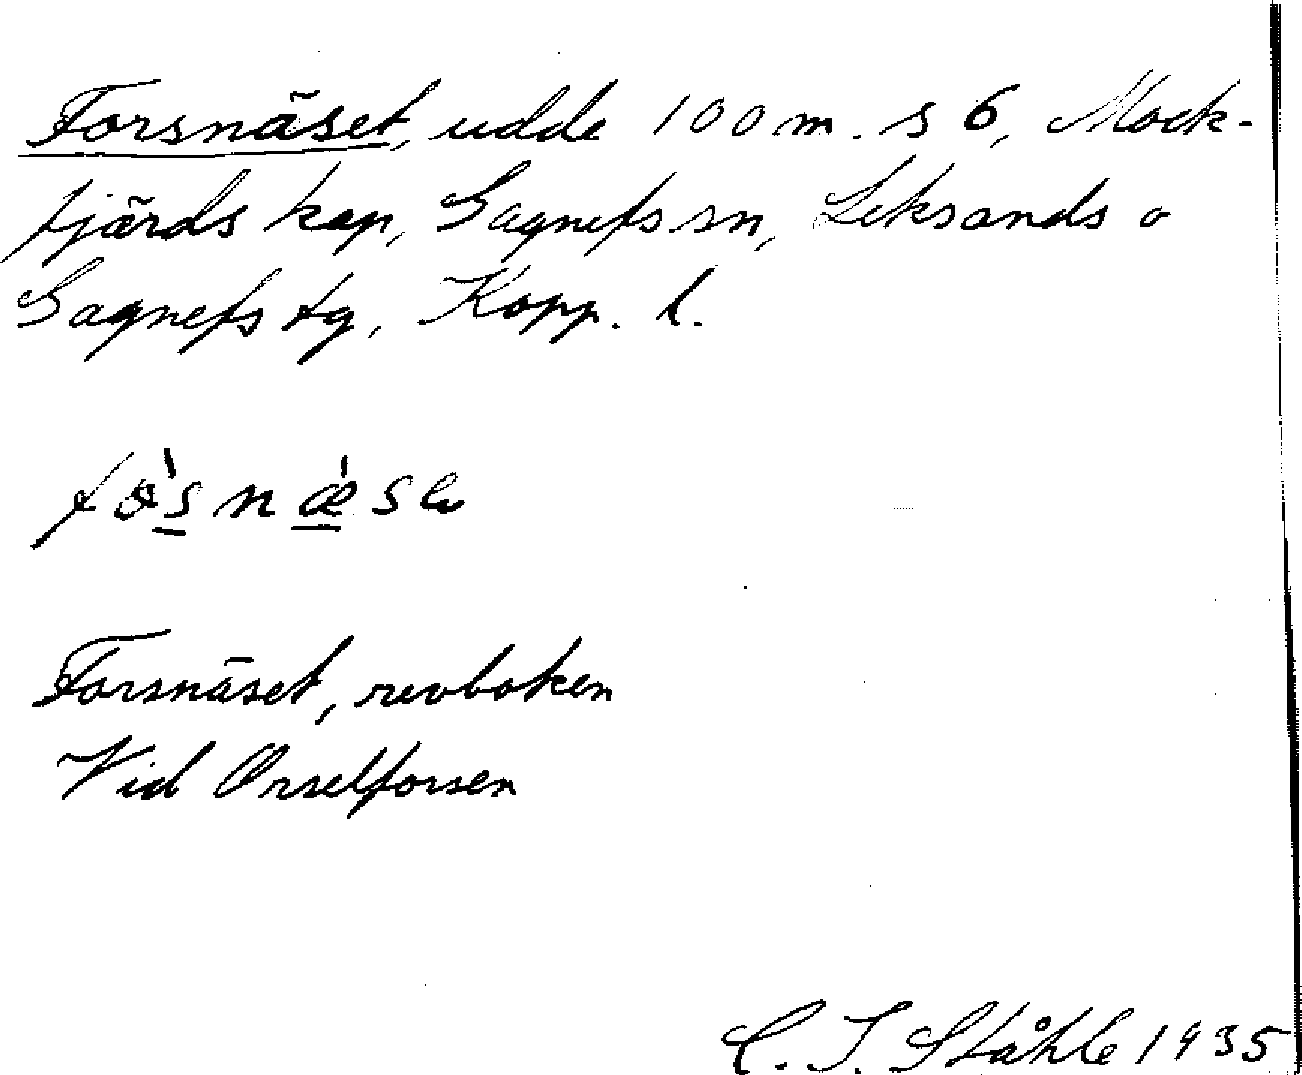 Forsnäset, udde 100 m. s 6, Mock-
fjärds kap, Gagnefs sn, Leksands o
Gagnefs tg, Kopp. l.
Forsnäset, revboken
Vid Orselforsen
C. I. Ståhle 1935